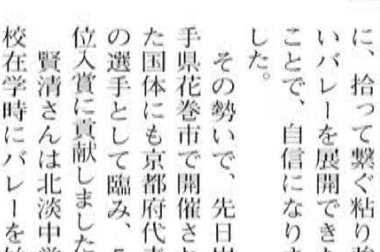 に、拾って繋ぐ粘り
いバレーを展開でき
ことで、自信になり
した。
その勢いで、先日
手県花巻市で開催さ
た国体にも京都府代
の選手として臨み、
位入賞に貢献しました
賢清さんは北淡中学
校在学時にバレーを